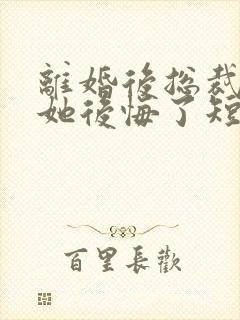 離婚後総裁
她後悔了短
百里長歡